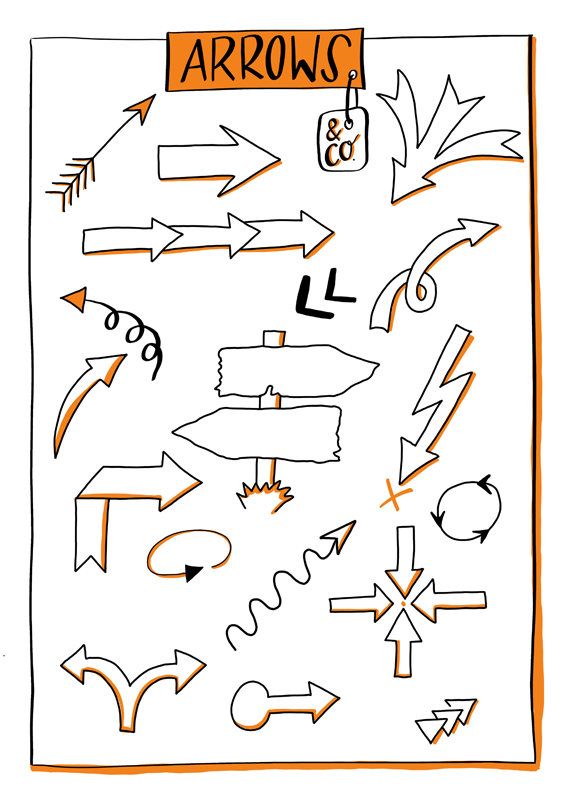 ARROWS
&
CO.